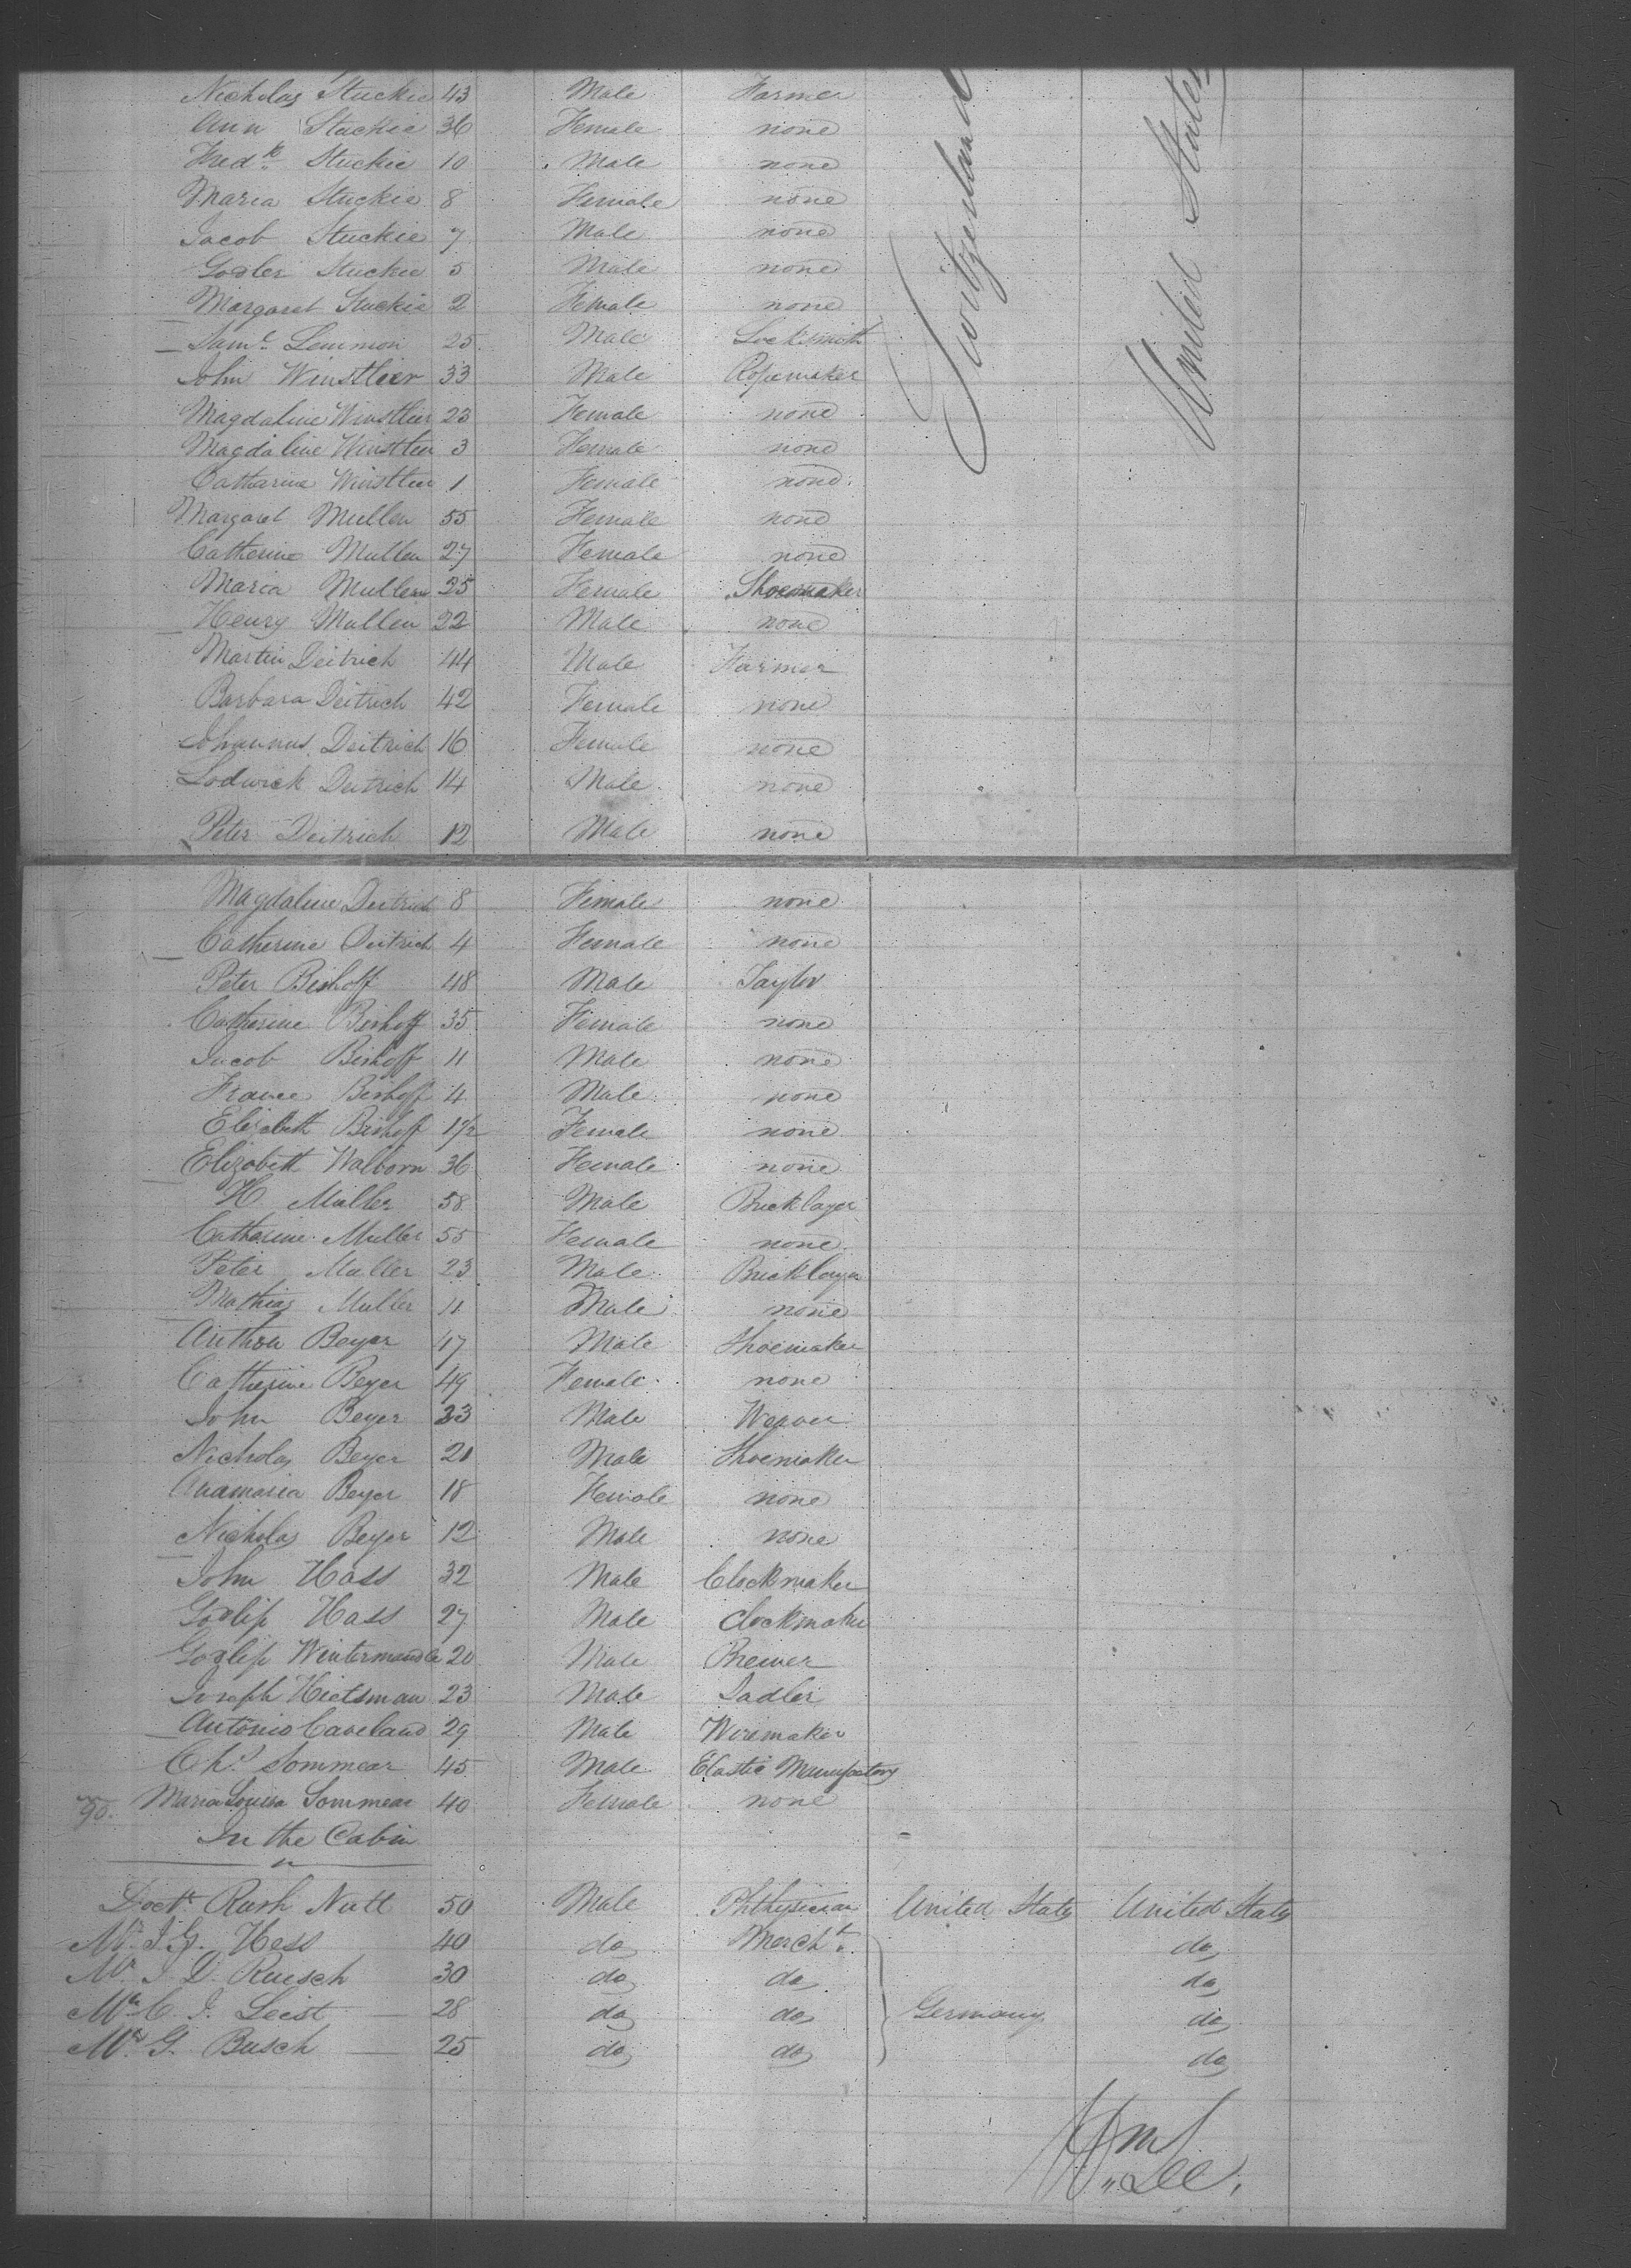 Nicholas Stuckie 43 Male Farmer
Ann Stuckie 36 Female none
Fredk Stuckie 10 Male none
Maria Stuckie 8 Female none
Jacob Stuckie 7 Male none
Stuckie 5 Male none
Margaret Stuckie 2 Female none
Saml Lemmon 25 Male Locksmith
John Winstleer 33 Male Ropemaker
Magdaline Winstleer 23 Female none
Magdaline Winstleer 3 Female none
Catharine Winstleer 1 Female none
Switzerland
United States
Margaret Mullen 55 Female none
Catherine Mullen 27 Female none
Maria Mullen 25 Female Shoemaker
Henry Mullen 22 Male none
Martin Deitrich 44 Male Farmer
Barbara Deitrich 42 Female none
Johannus Deitrich 16 Female none
Lodwick Deitrich 14 Male none
Peter Deitrich 12 Male none
Magdaline Deitrich 8 Female none
Catherine Deitrich 4 Female none
Peter Bishoff 48 Male Taylor
Catherine Bishoff 35 Female none
Jacob Bishoff 11 Male none
Bishoff 4 Male none
Elizabeth Bishoff 1½ Female none
Elizabeth Walborn 36 Female none
H Muller 58 Male Bricklayer
Catherine Muller 55 Female none
Peter Muller 23 Male Bricklayer
Mathias Muller 11 Male none
Anthon Beyer 47 Male Shoemaker
Catherine Beyer 49 Female none
John Beyer 23 Male Weaver
Nicholas Beyer 21 Male Shoemaker
Anamaria Beyer 18 Female none
Nicholas Beyer 12 Male none
John Hass 32 Male Clockmaker
Godlip Hass 27 Male Clockmaker
Godlip Wintermandle 20 Male Brewer
Joseph Hietsman 23 Male Sadler
Antonio Caveland 29 Male Wiremaker
Chs Sommear 45 Male Elastic Manufactory
90. Maria Louisa Sommear 40 Female none
In the Cabin
Doctr Rush Nutt 50 Male Phthysician United States United States
Mr J. G. Hess 40 do Mercht. do
Mr J. D. Ruesch 30 do do do
Mr C. J. Leist 28 do do Germany do
Mr G. Busch 25 do do do
Wm Lee.